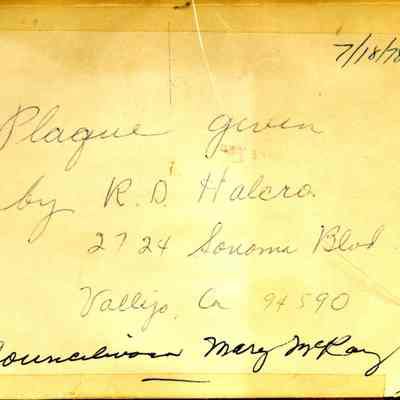 7/18/78
Plaque given
by R.D. Halcro.
2724 Sonoma Blvd
Vallejo, Ca 94590
Councilwoman Mary McRay